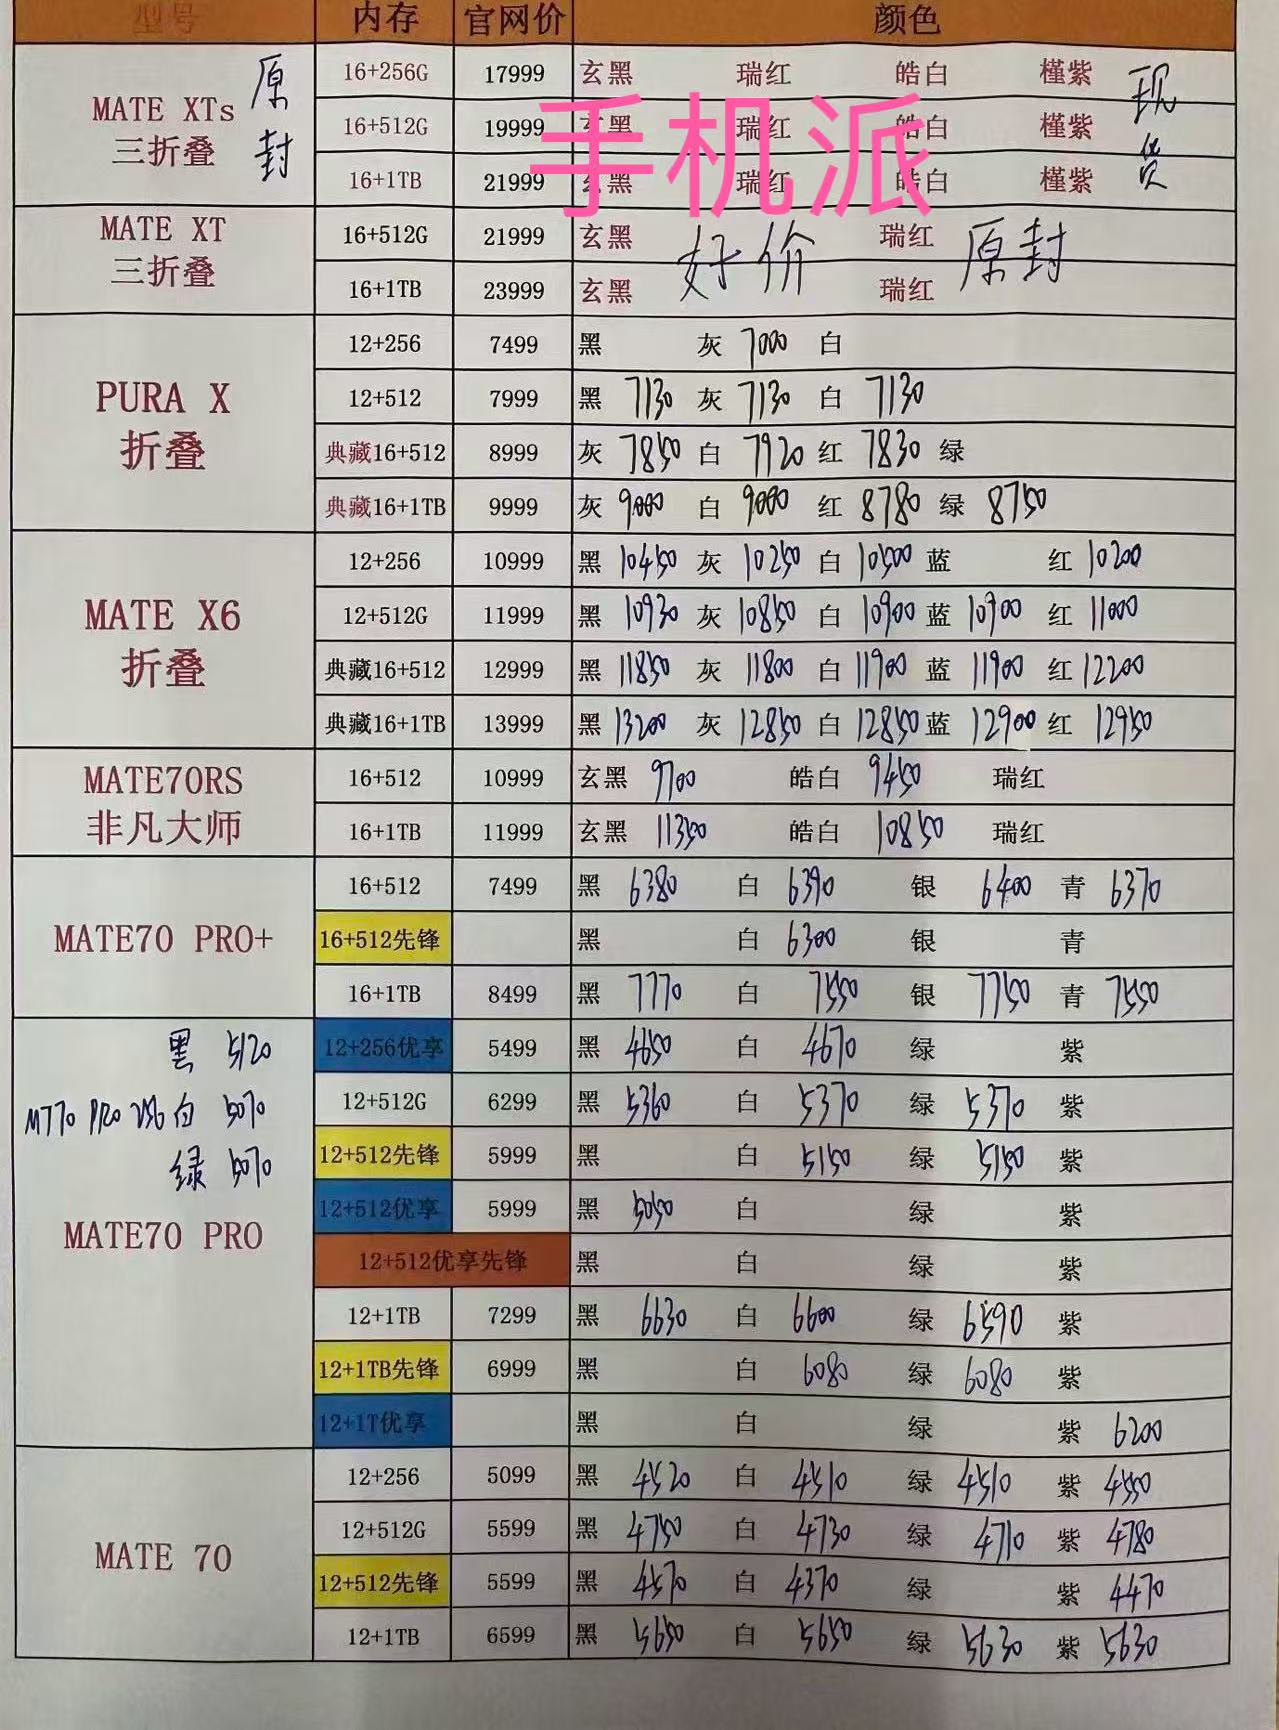 型号 内存 官网价 颜色
MATE XTs 三折叠 原封 现货
16+256G 17999 玄黑 瑞红 皓白 槿紫
手机派
16+512G 19999 玄黑 瑞红 皓白 槿紫
16+1TB 21999 玄黑 瑞红 皓白 槿紫
MATE XT 三折叠 好价 原封
16+512G 21999 玄黑 瑞红
16+1TB 23999 玄黑 瑞红
PURA X 折叠
12+256 7499 黑 灰 7000 白
12+512 7999 黑 7130 灰 7130 白 7130
典藏16+512 8999 灰 7850 白 7920 红 7830 绿
典藏16+1TB 9999 灰 9000 白 9000 红 8780 绿 8750
MATE X6 折叠
12+256 10999 黑 10450 灰 10250 白 10500 蓝 红 10200
12+512G 11999 黑 10930 灰 10850 白 10900 蓝 10900 红 11000
典藏16+512 12999 黑 11850 灰 11800 白 11900 蓝 11900 红 12200
典藏16+1TB 13999 黑 13200 灰 12850 白 12850 蓝 12900 红 12950
MATE70RS 非凡大师
16+512 10999 玄黑 9700 皓白 9450 瑞红
16+1TB 11999 玄黑 11350 皓白 10850 瑞红
MATE70 PRO+
16+512 7499 黑 6380 白 6390 银 6400 青 6370
16+512先锋 黑 白 6300 银 青
16+1TB 8499 黑 7770 白 7550 银 7750 青 7550
黑 5120
MT70 PRO 256 白 5070
绿 5070
MATE70 PRO
12+256优享 5499 黑 4650 白 4670 绿 紫
12+512G 6299 黑 5360 白 5370 绿 5370 紫
12+512先锋 5999 黑 白 5150 绿 5150 紫
12+512优享 5999 黑 5050 白 绿 紫
12+512优享先锋 黑 白 绿 紫
12+1TB 7299 黑 6630 白 6600 绿 6590 紫
12+1TB先锋 6999 黑 白 6080 绿 6080 紫
12+1T优享 黑 白 绿 紫 6200
MATE 70
12+256 5099 黑 4520 白 4510 绿 4510 紫 4550
12+512G 5599 黑 4750 白 4730 绿 4710 紫 4780
12+512先锋 5599 黑 4570 白 4370 绿 紫 4470
12+1TB 6599 黑 5650 白 5650 绿 5630 紫 5630